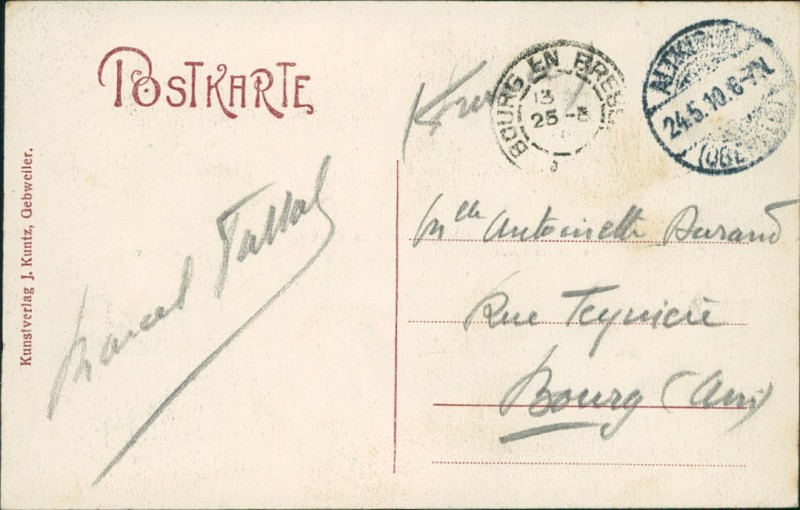 POSTKARTE
BOURG EN BRESSE
13
25 -5
24.5.10. 6-7N.
Mlle Antoinette Durand
Rue Teynière
Bourg (Ain)
Marcel
Kunstverlag J. Kuntz, Gebweiler.